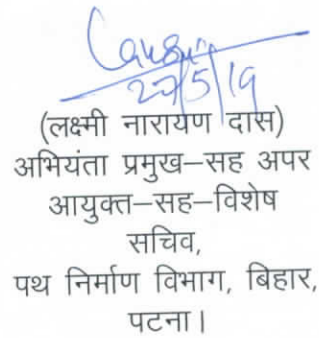 20/5/19
(लक्ष्मी नारायण दास)
अभियंता प्रमुख–सह अपर
आयुक्त–सह–विशेष
सचिव,
पथ निर्माण विभाग, बिहार,
पटना।